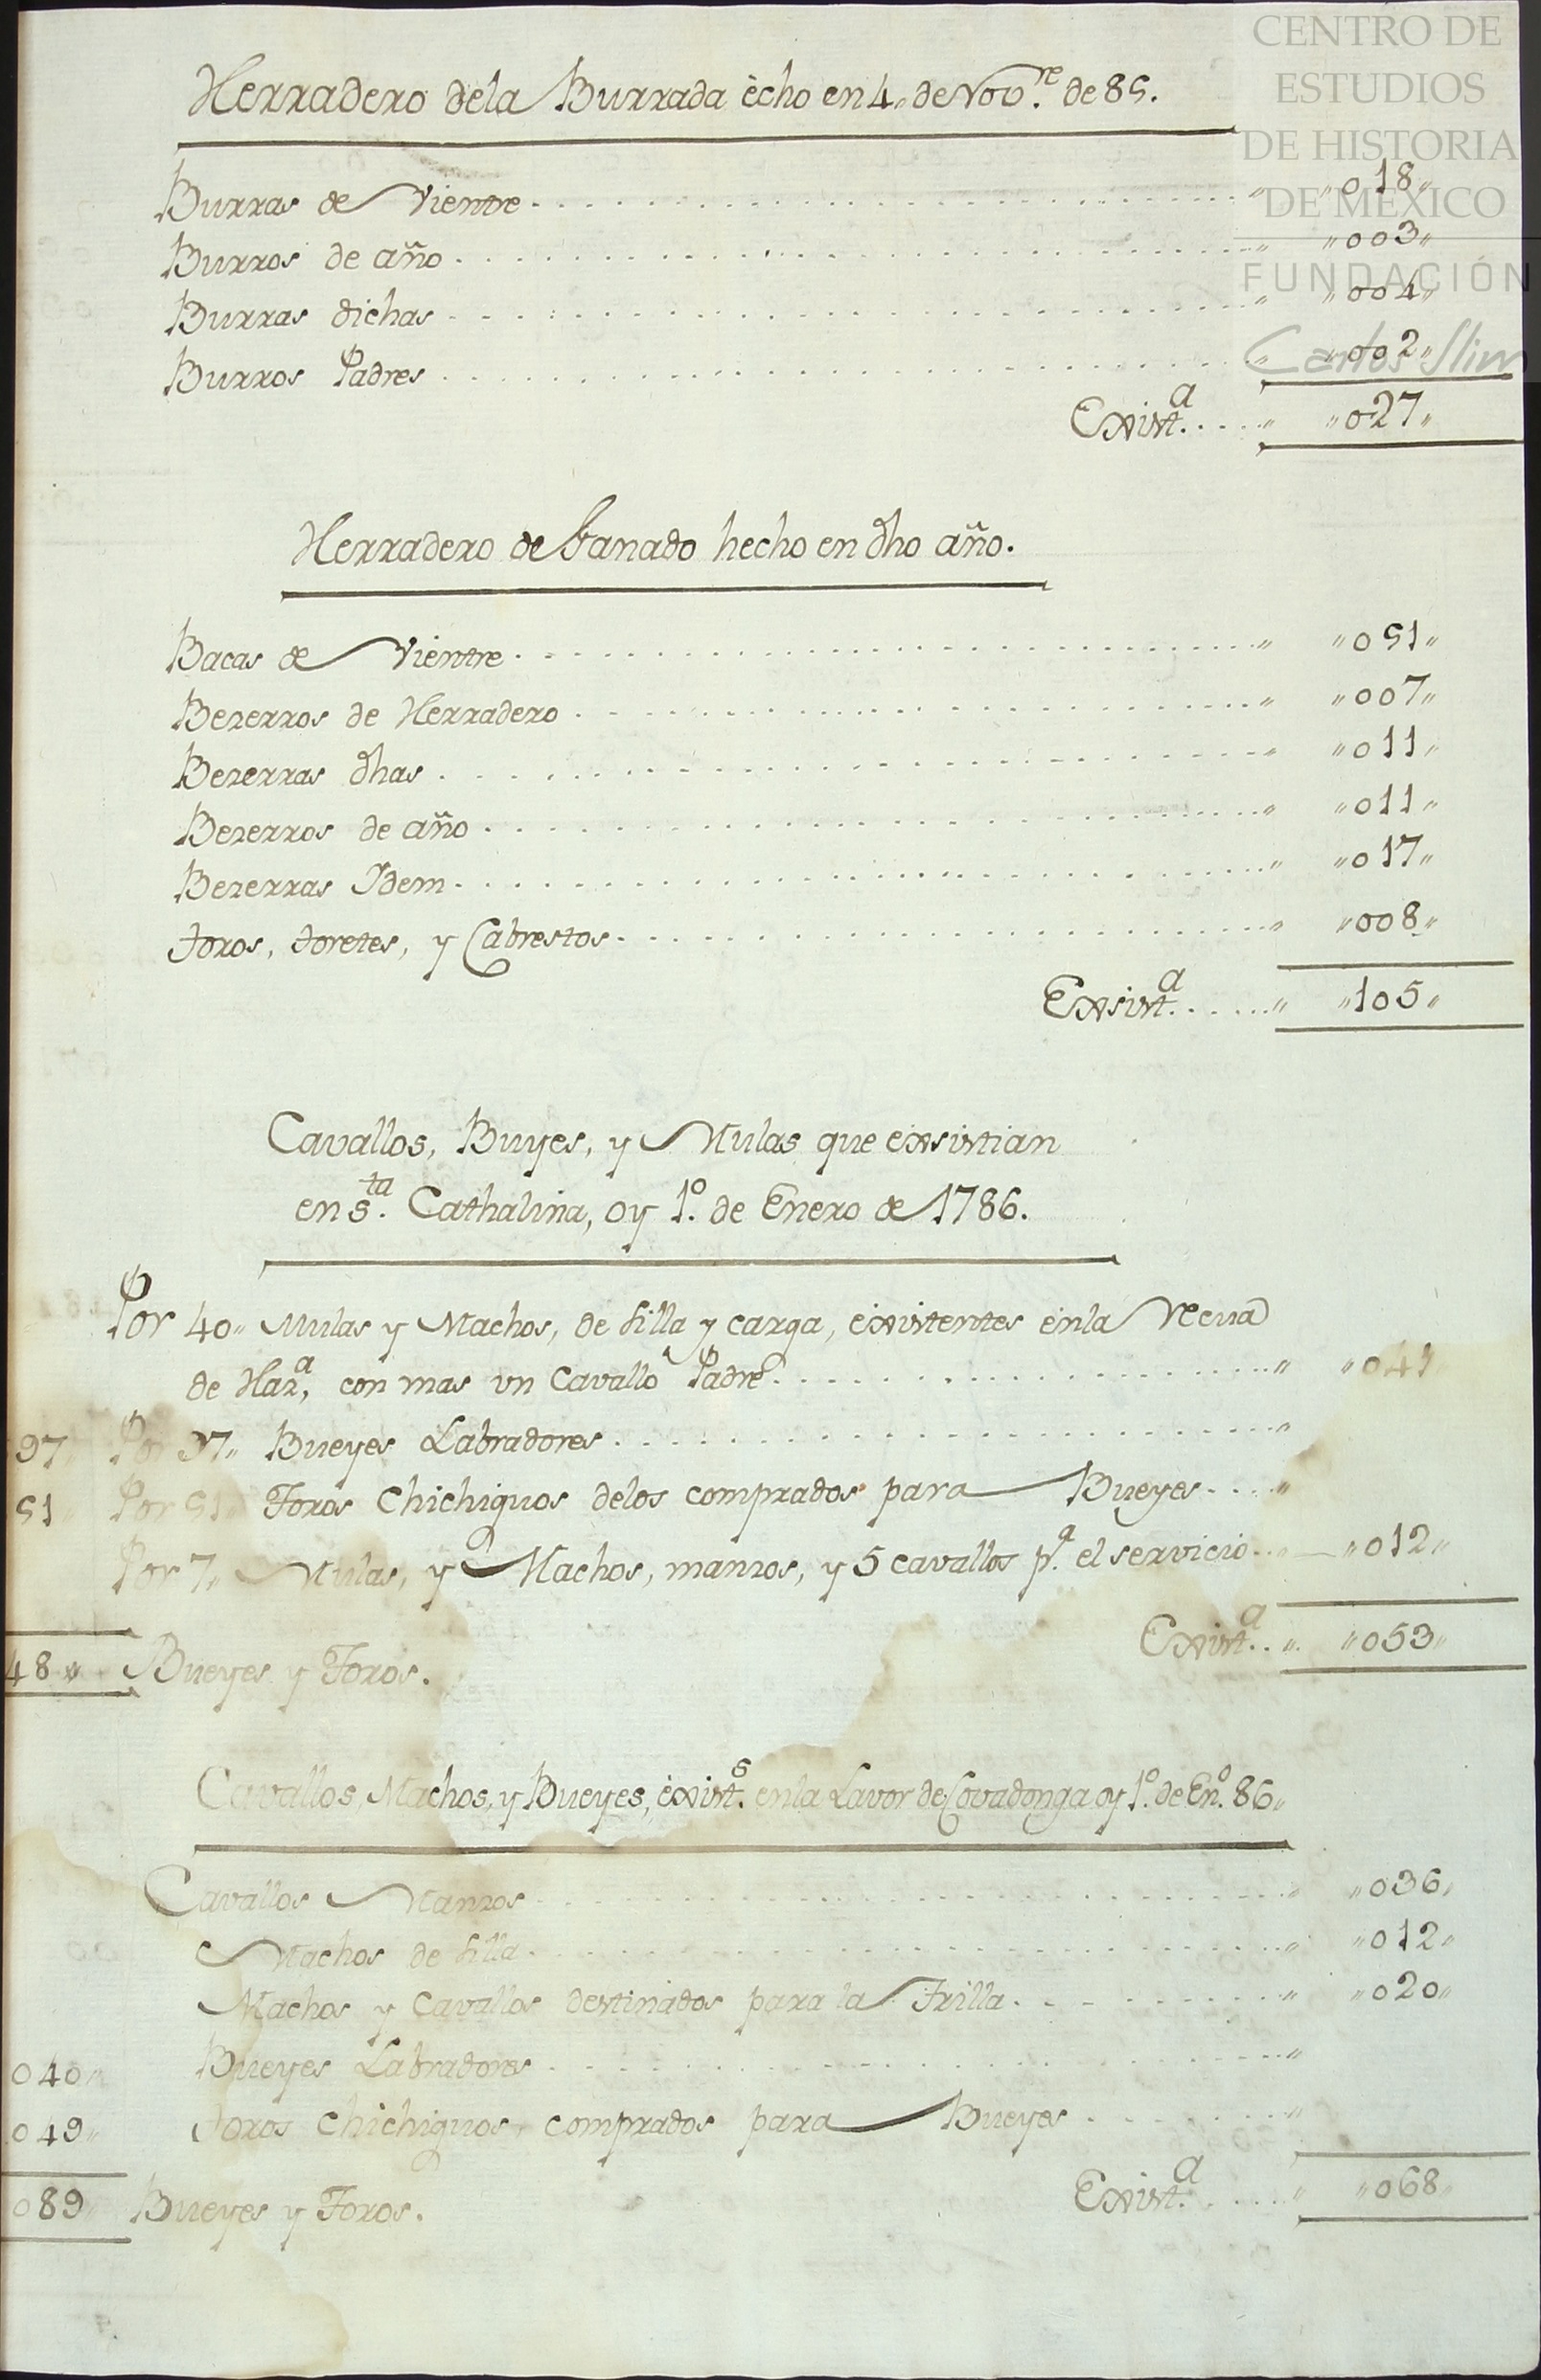 CENTRO DE
ESTUDIOS
DE HISTORIA
DE MÉXICO
FUNDACIÓN
Carlos Slim
Herradero dela Burrada ècho en 4,, de Nov.re de 85.
Burras de Vientre . . . ,, ,,018,,
Burros de año . . . ,, ,,003,,
Burras dichas . . . ,, ,,004,,
Burros Padres . . . ,, ,,002,,
Exist.a . . . ,, ,,027,,
Herradero de Ganado hecho en dho año.
Bacas de Vientre . . . ,, ,,051,,
Bezerros de Herradero . . . ,, ,,007,,
Bezerras dhas . . . ,, ,,011,,
Bezerros de año . . . ,, ,,011,,
Bezerras Idem . . . ,, ,,017,,
Toros, toretes, y Cabrestos . . . ,, ,,008,,
Exsist.a . . . ,, ,,105,,
Cavallos, Buyes, y Mulas que exsistian
en S.ta Cathalina, oy 1.o de Enero de 1786.
Por 40,, Mulas y Machos, de silla y carga, existentes enla Recua
de Haz.a, con mas un Cavallo Padre . . . ,, ,,041
97,, Por 97,, Bueyes Labradores . . . ,,
51,, Por 51,, Toros Chichiguos delos comprados para Bueyes . . . ,,
Por 7,, Mulas, y Machos, mansos, y 5 cavallos p.a el servicio . . ,, ,,012,,
Exist.a . . ,, ,,053,,
48,, Bueyes y Toros.
Cavallos, Machos, y Bueyes, éxist.s enla Lavor de Covadonga oy 1.o de En.o 86,,
Cavallos Mansos . . . ,, ,,036,,
Machos de silla . . . ,, ,,012,,
Machos y Cavallos destinados para la Trilla . . . ,, ,,020,,
040,, Bueyes Labradores . . . ,,
049,, Toros Chichiguos, comprados para Bueyes . . . ,,
Exist.a . . . ,, ,,068,,
089,, Bueyes y Toros.